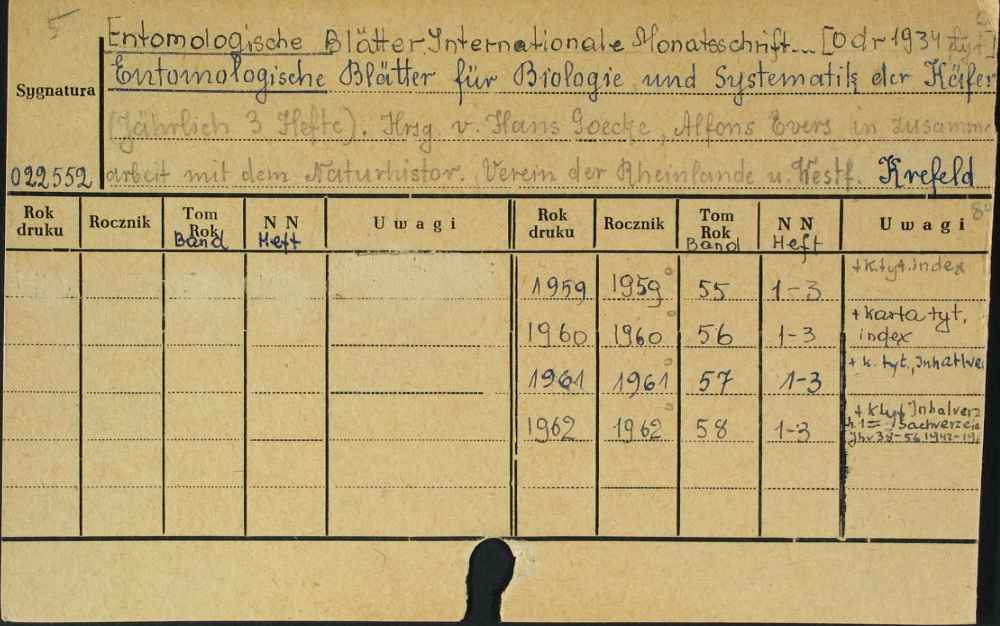 5
Entomologische Blätter. Internationale Monatsschrift... [od r 1934 tyt]
Entomologische Blätter für Biologie und Systematik der Käfer
Sygnatura
(Jährlich 3 Hefte). Hrsg. v. Hans Goecke, Alfons Evers in Zusamme
022552 arbeit mit dem Naturhistor. Verein der Rheinlande u. Westf. Krefeld
Rok druku Rocznik Tom Rok Band N N Heft Uwagi Rok druku Rocznik Tom Rok Band N N Heft Uwagi
1959 1959 55 1-3 + k. tyt. index
1960 1960 56 1-3 + karta tyt, index
1961 1961 57 1-3 + k. tyt., Inhaltve
1962 1962 58 1-3 + k tyt Inhalverz
h. 1 = Sachverzei
Jhv 38-56 1942-19